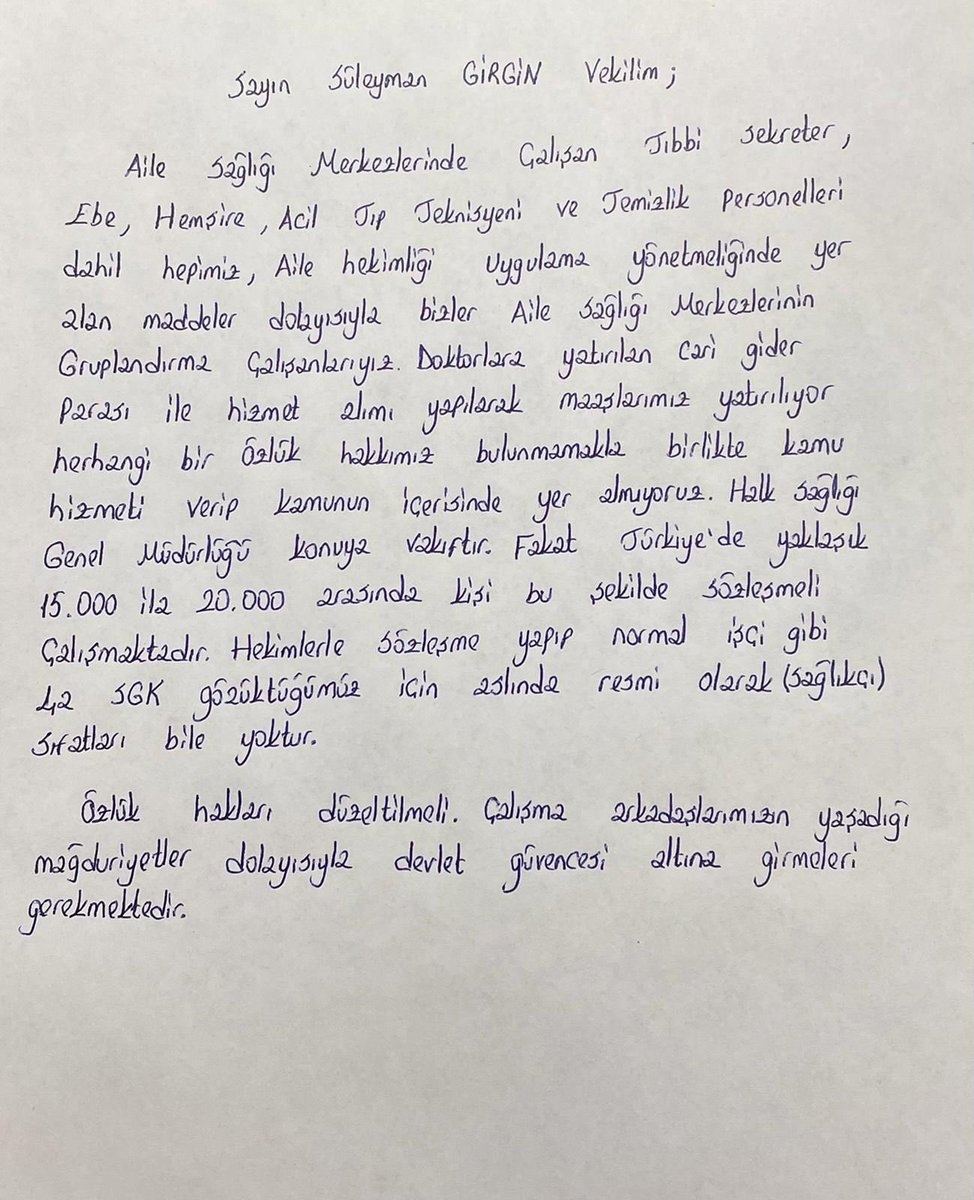 Sayın Süleyman GİRGİN Vekilim;
Aile Sağlığı Merkezlerinde Çalışan Tıbbi Sekreter,
Ebe, Hemşire, Acil Tıp Teknisyeni ve Temizlik Personelleri
dahil hepimiz, Aile hekimliği Uygulama yönetmeliğinde yer
alan maddeler dolayısıyla bizler Aile Sağlığı Merkezlerinin
Gruplandırma Çalışanlarıyız. Doktorlara yatırılan cari gider
Parası ile hizmet alımı yapılarak maaşlarımız yatırılıyor
herhangi bir Özlük hakkımız bulunmamakla birlikte kamu
hizmeti verip kamunun içerisinde yer almıyoruz. Halk Sağlığı
Genel Müdürlüğü konuya vakıftır. Fakat Türkiye'de yaklaşık
15.000 ila 20.000 arasında kişi bu şekilde sözleşmeli
Çalışmaktadır. Hekimlerle sözleşme yapıp normal işçi gibi
4a SGK gözüktüğümüz için aslında resmi olarak (Sağlıkçı)
Sıfatları bile yoktur.
Özlük hakları düzeltilmeli. Çalışma arkadaşlarımızın yaşadığı
mağduriyetler dolayısıyla devlet güvencesi altına girmeleri
gerekmektedir.